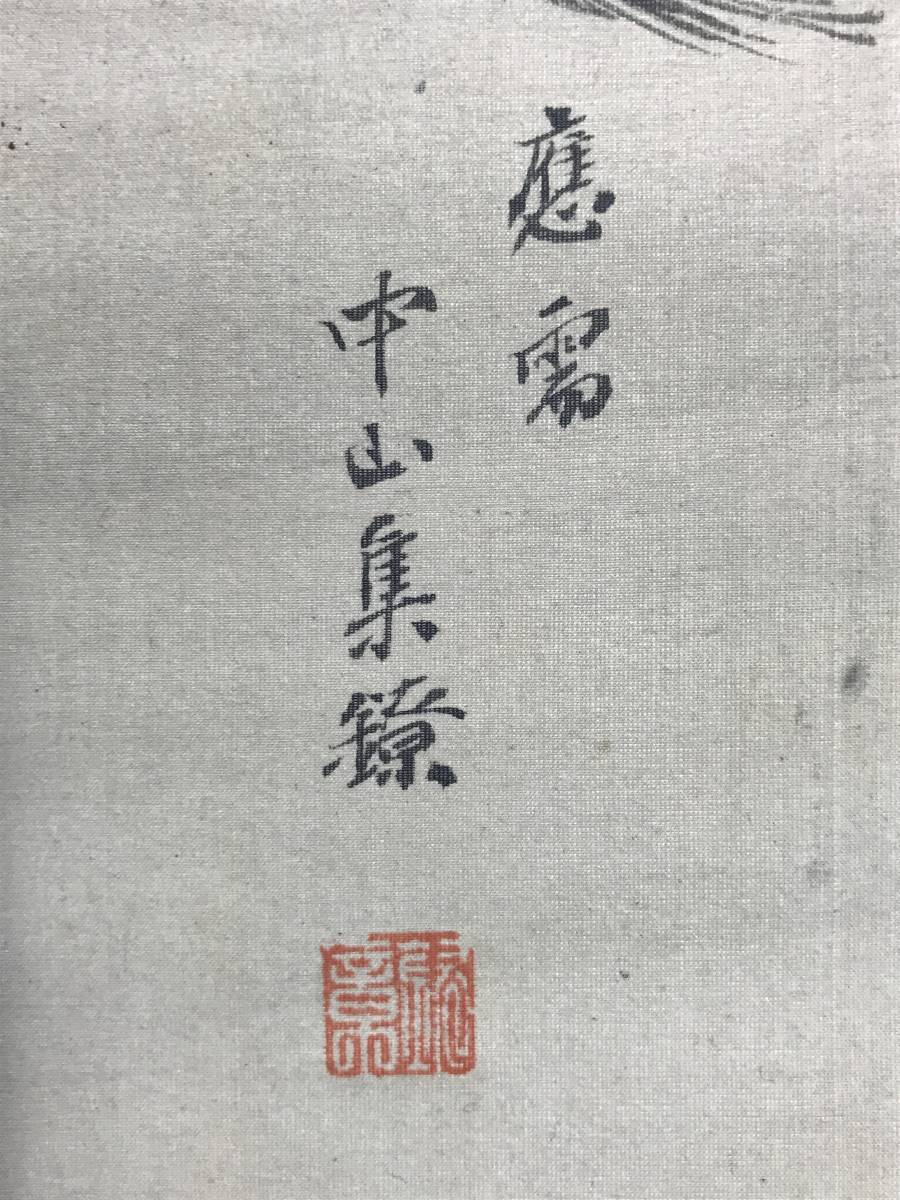 應需
中山集鐐